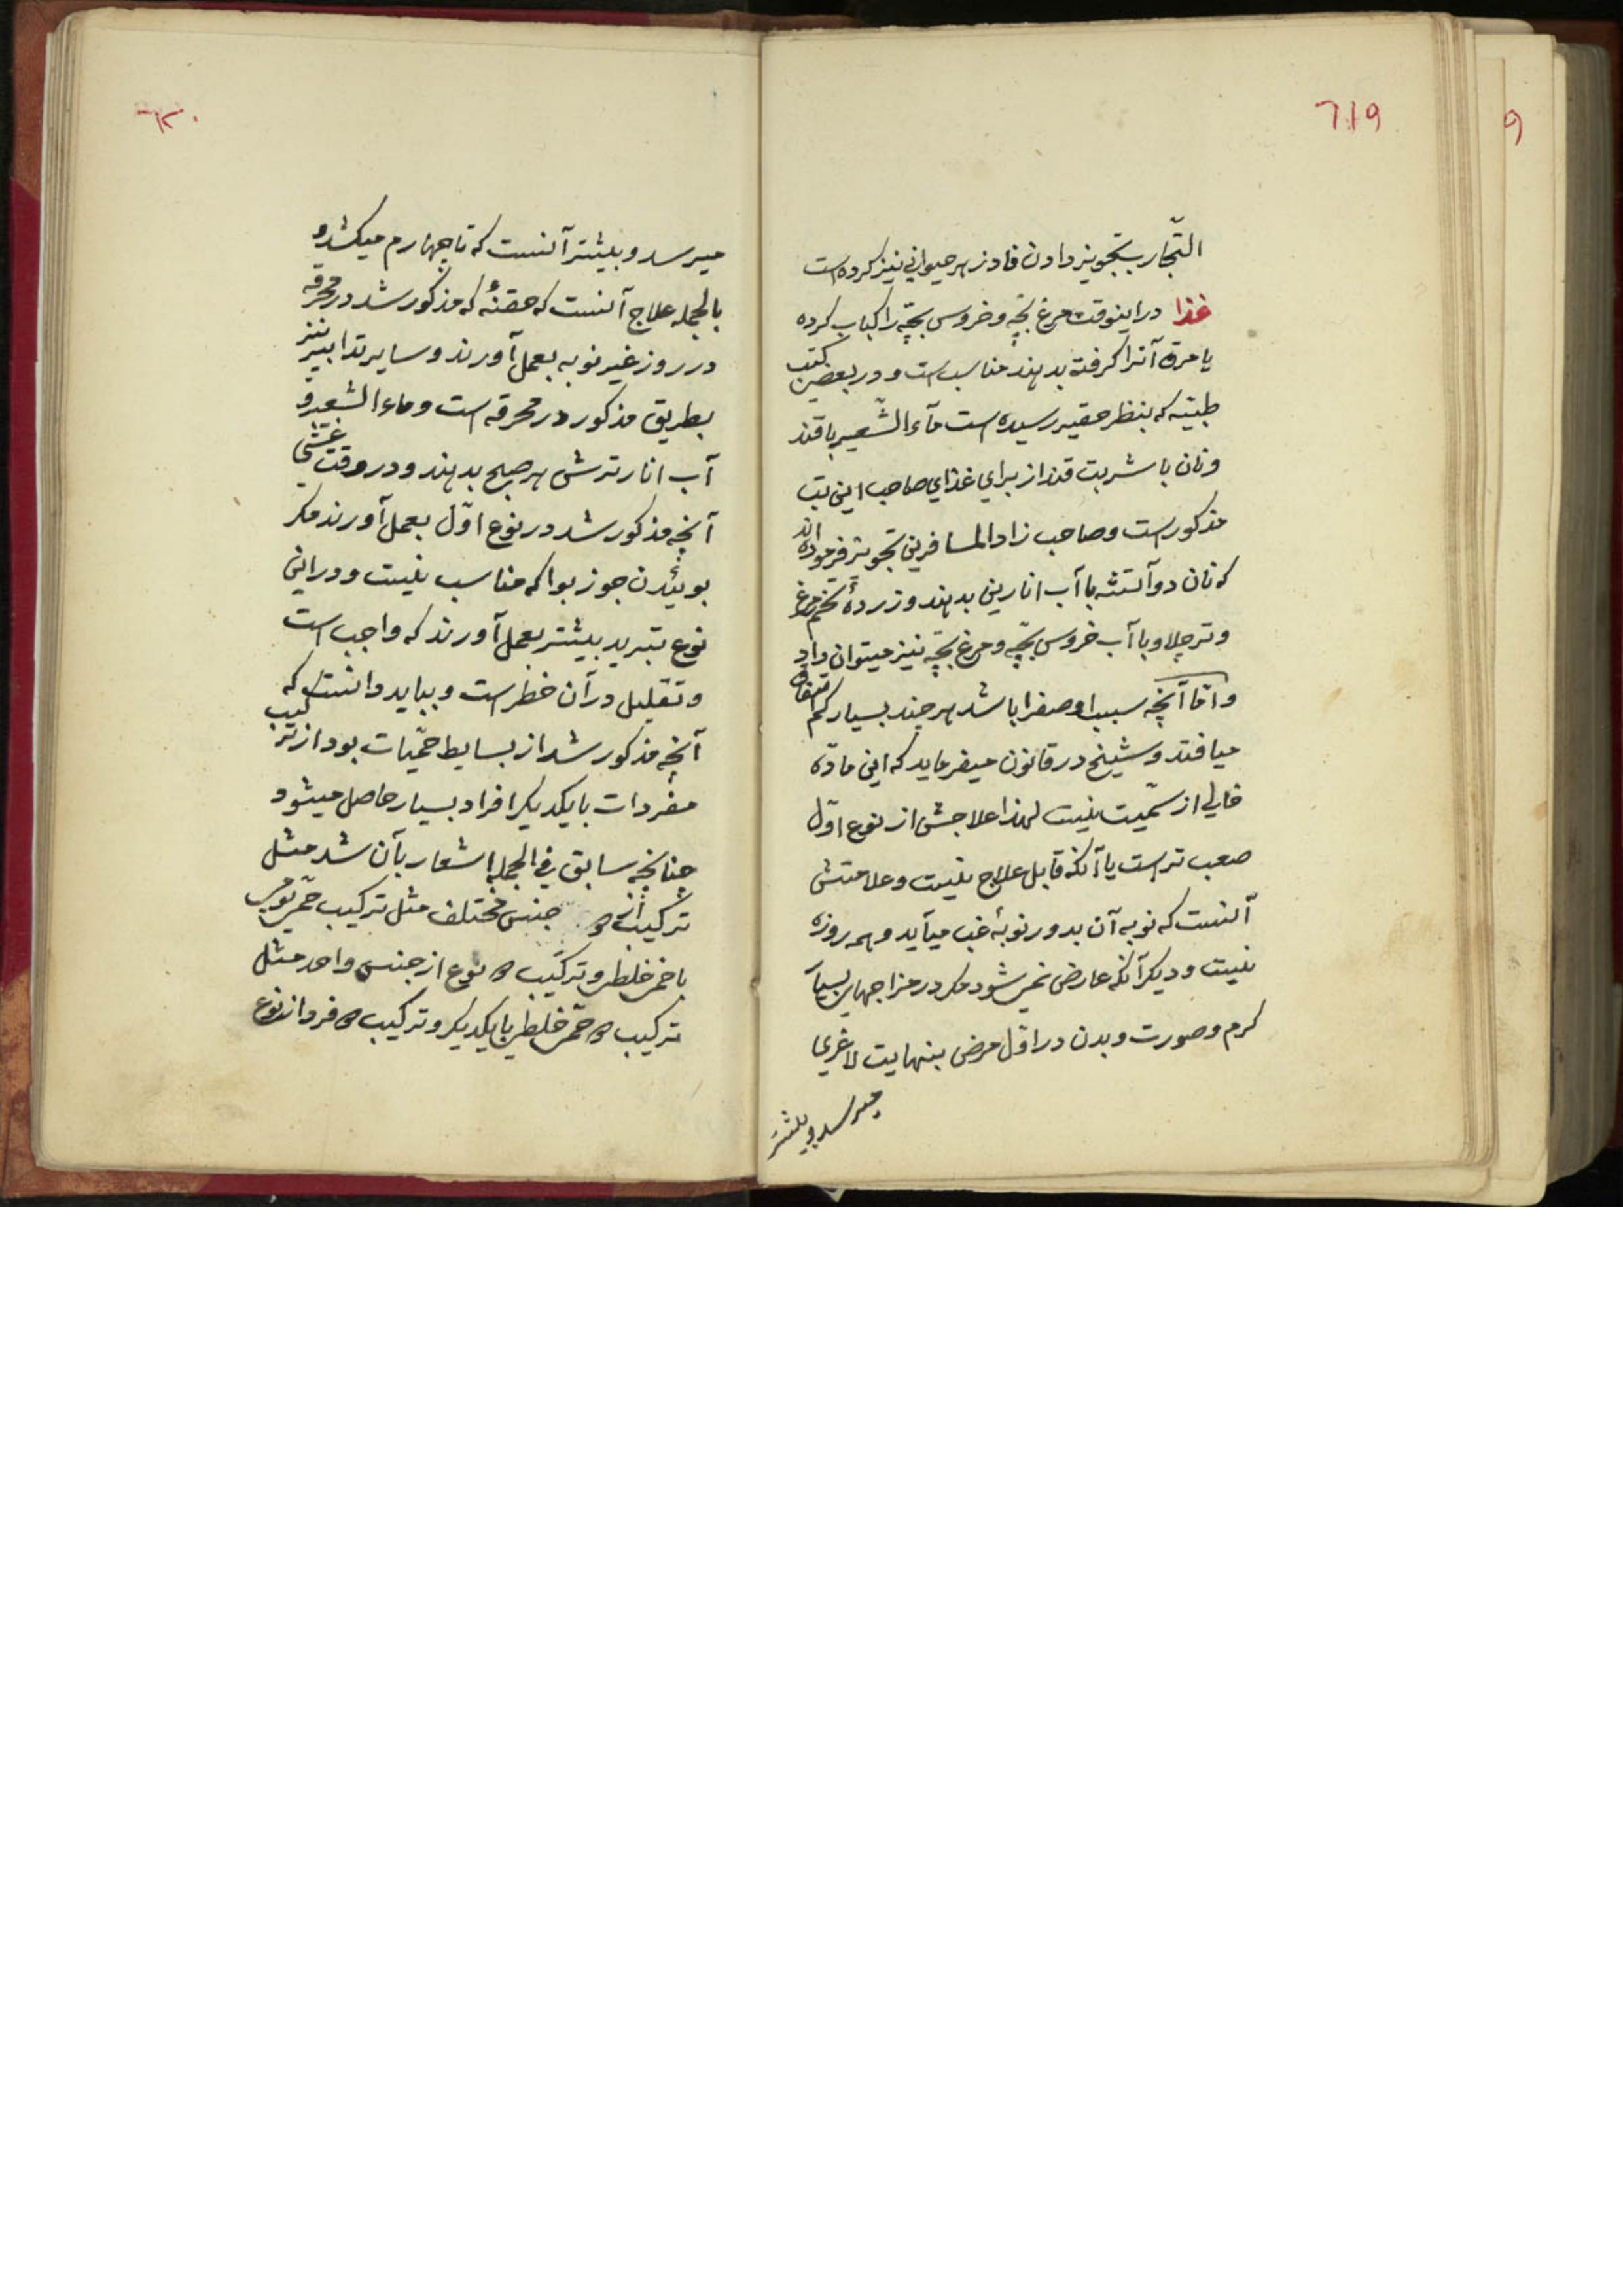 ٦١٩
التجارب تجویز دادن فادزهر حیوانی نیز کرده است
غذا در اینوقت مرغ بچّه و خروس بچّه را کباب کرده
یا مرق آنرا گرفته بدهند مناسب است و در بعضی کتب
طبیّه که بنظر حقیر رسیده است مآء الشّعیر با قند
و نان با شربت قند از برای غذای صاحب این تب
مذکور است و صاحب زاد المسافرین تجویز فرموده‌اند
که نان دو آتشه با آب انارین بدهند و زردهٔ تخم مرغ
و تر چلاو با آب خروس بچّه و مرغ بچّه نیز میتوان داد
و امّا آنچه سبب او صفرا باشد هر چند بسیار کم اتفاق
میافتد و شیخ در قانون میفرماید که این مادّه
خالی از سمّیت نیست لهذا علاجش از نوع اوّل
صعب‌تر است یا آنکه قابل علاج نیست و علامتش
آنست که نوبه آن بدور نوبهٔ غب میآید و همه روزه
نیست و دیگر آنکه عارض نمی‌شود مگر در مزاجهای بسیار
گرم و صورت و بدن در اوّل مرض بنهایت لاغری
میرسد و بیشتر
٦٢٠
میرسد و بیشتر آنست که تا چهارم میکشد و
بالجمله علاج آنست که حقنهٔ که مذکور شد در محرقه
در روز غیر نوبه بعمل آورند و سایر تدابیر نیز
بطریق مذکور در محرقه است و ماء الشّعیر و
آب انار ترش هر صبح بدهند و در وقت غشی
آنچه مذکور شد در نوع اوّل بعمل آورند مگر
بوئیدن جوز بوا که مناسب نیست و در این
نوع تبرید بیشتر بعمل آورند که واجب است
و تقلیل در آن خطر است و بباید دانست که
آنچه مذکور شد از بسایط حمّیات بود از ترکیب
مفردات با یکدیگر افراد بسیار حاصل میشود
چنانچه سابق فی الجمله اشعار بآن شد مثل
ترکیب جنس مختلف مثل ترکیب حمّی یومی
با حمی خلطی و ترکیب نوع از جنس واحد مثل
ترکیب حمّی خلطی با یکدیگر و ترکیب فرد از نوع